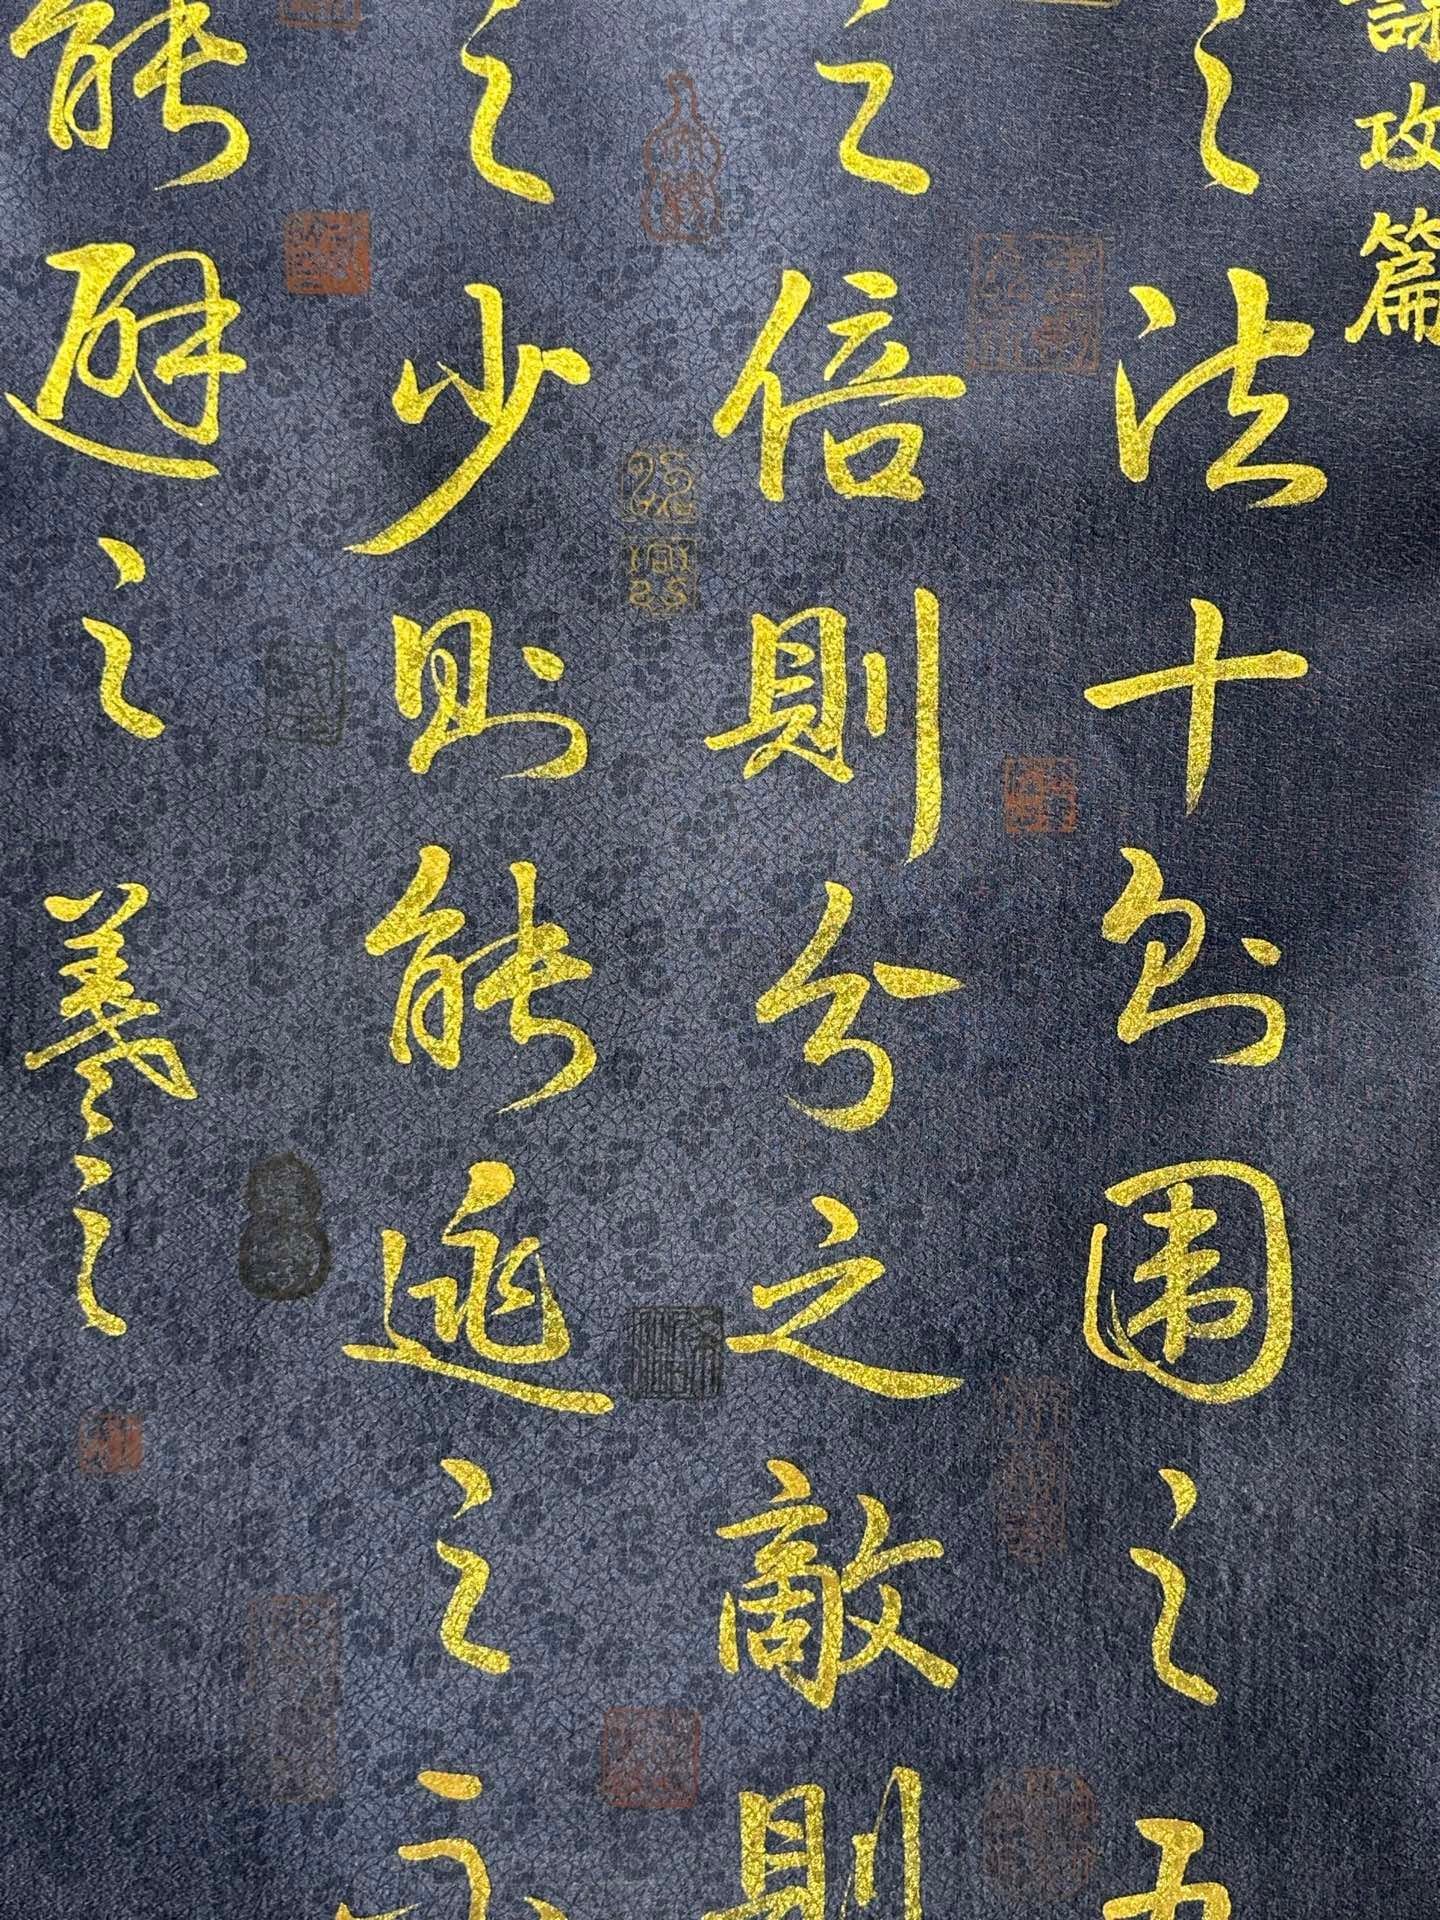 謀攻篇
之法十則围之五
之倍則分之敵則
之少則能逃之不
能避之羲之